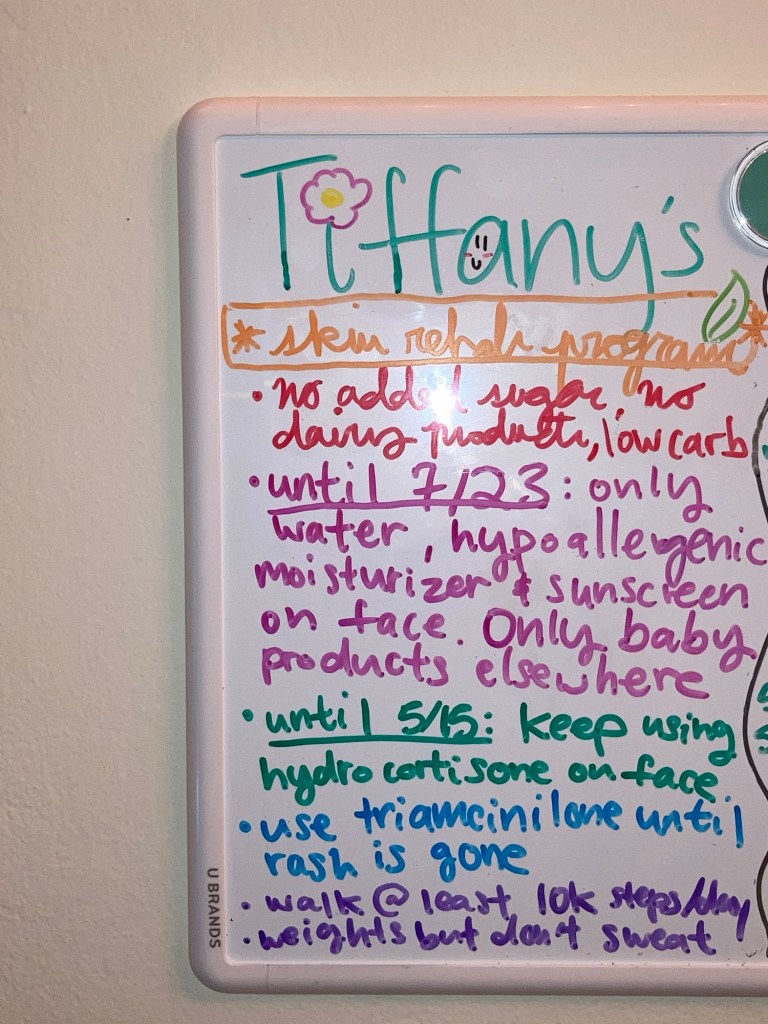 Tiffany's
* skin rehab program *
• no added sugar, no
dairy products, low carb
• until 7/23: only
water, hypoallergenic
moisturizer & sunscreen
on face. Only baby
products elsewhere
• until 5/15: keep using
hydrocortisone on face
• use triamcinilone until
rash is gone
• walk @ least 10k steps/day
• weights but don't sweat
U BRANDS